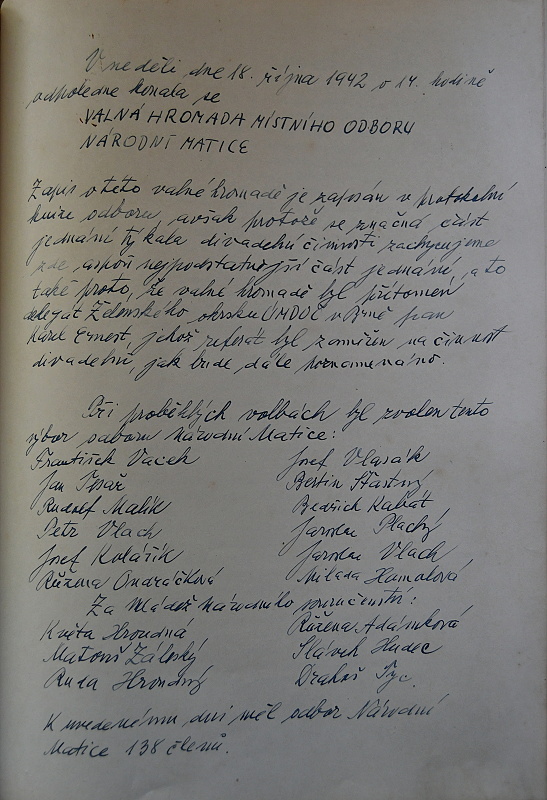 V neděli dne 18. října 1942 o 14. hodině
odpoledne konala se
VALNÁ HROMADA MÍSTNÍHO ODBORU
NÁRODNÍ MATICE
Zápis o této valné hromadě je zapsán v protokolní
knize odboru, avšak protože se značná část
jednání týkala divadelní činnosti zachycujeme
zde aspoň nejpodstatnější část jednání, a to
také proto, že valné hromadě byl přítomen
delegát Ždenského okrsku ÚMDOČ v Brně pan
Karel Ernest, jehož referát byl zaměřen na činnost
divadelní, jak bude dále poznamenáno.
Při proběhlých volbách byl zvolen tento
výbor odboru Národní Matice:
František Vacek Josef Vlasák
Jan Tesař Bertin Šťastný
Rudolf Malík Bedřich Kabát
Petr Vlach Jaroslav Plachý
Josef Kolářík Jaroslav Vlach
Růžena Ondráčková Milada Hamalová
Za Mládež Národního souručenství:
Květa Hroudná Růžena Adámková
Matouš Záleský Slávek Hudec
Ruda Hroudný Drahoš Tyc.
K uvedenému dni měl odbor Národní
Matice 138 členů.